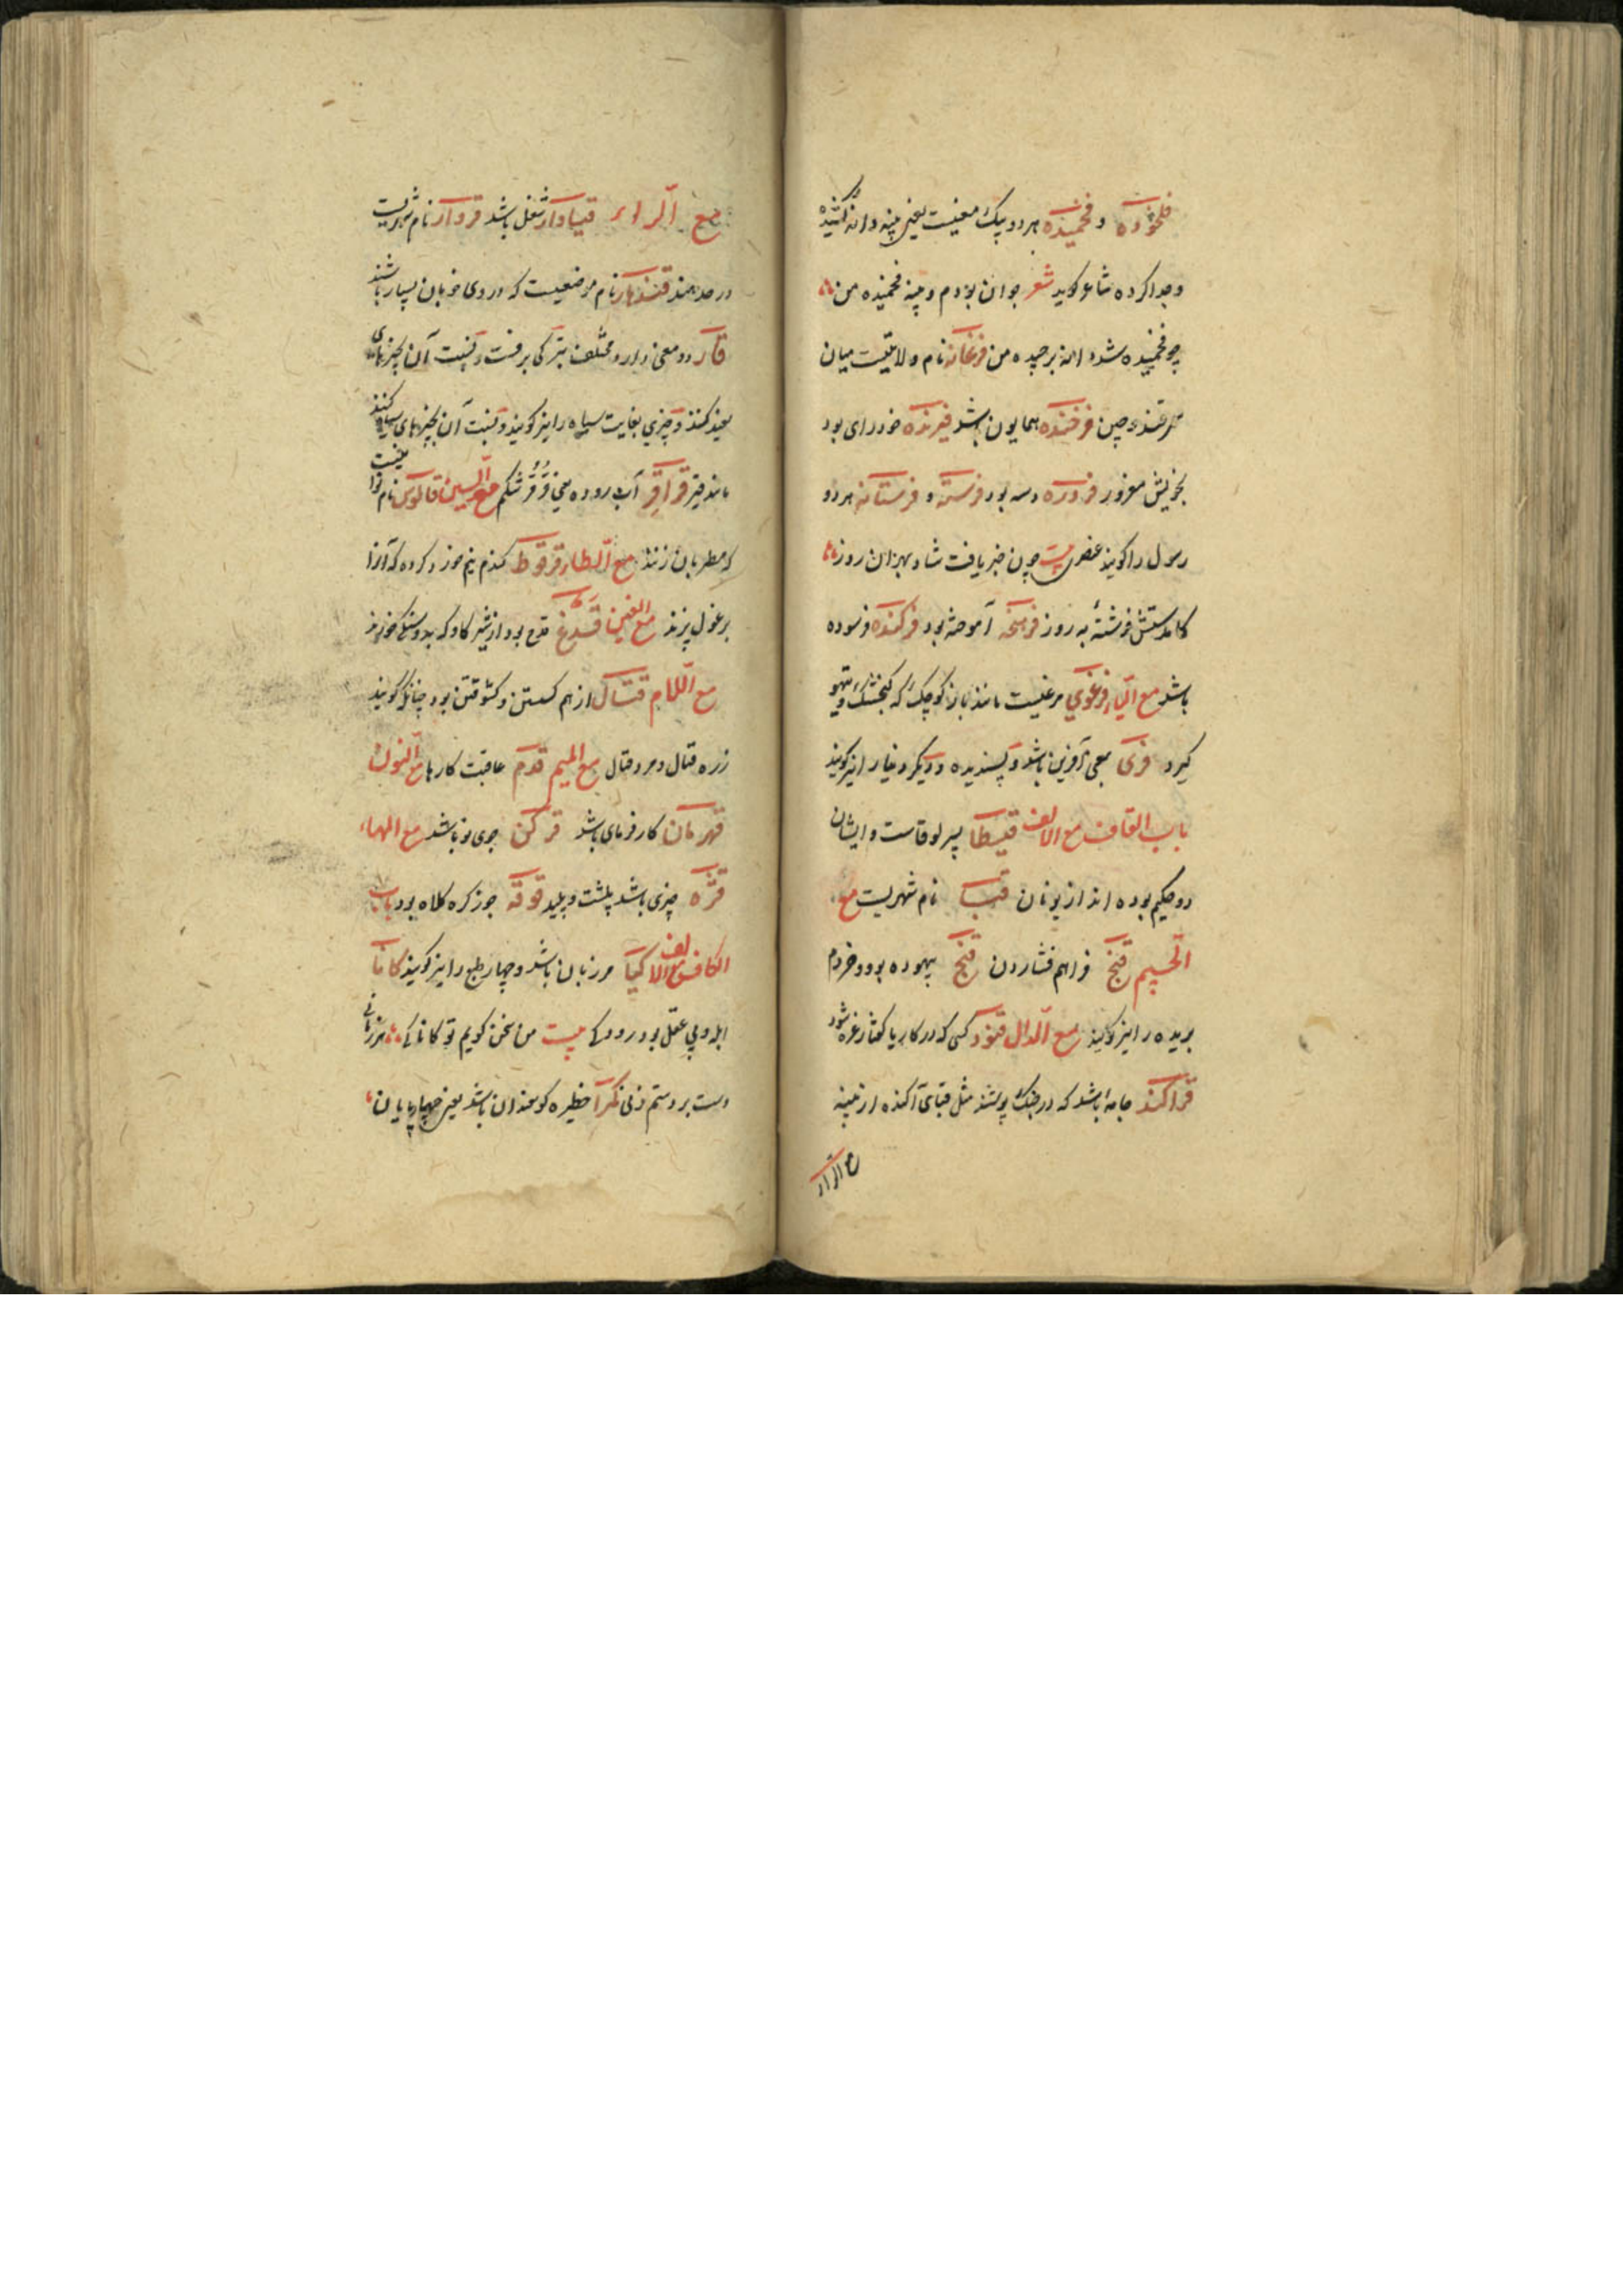 فلخوده و فخمیده هر دو یک معنیست یعنی پنبه دانه کشیده
و جدا کرده شاعر کوید شعر جوان بودم و پنبه فخمیده من
چو فخمیده شد دانه برچیده من فرغانه نام ولایتیست میان
سمرقند و چین فرخنده همایون باشد فیرنده خودرای بود
بخویش مغرور فروره دسه بود فرسته و فرستانه هر دو
رسول را کویند عنصری بیت چون خبر یافت شاد بهر آن روز
کامدستش فرشته به روز فرهخته آموخته بود فرکنده فرسوده
باشد مع الیاء فرغوی مرغیست مانند باز کوچک که کنجشک و تیهو
کیرد فری بمعنی آفرین باشد و پسندیده و دیکر دغا را نیز کویند
باب القاف مع الالف قیسطا پسر لوقاست و ایشان
دو حکیم بوده اند از یونان قبا نام شهریست مع
الجیم قنج فراهم فشاردن قنج بیهوده بود و خر دم
بریده را نیز کویند مع الدال قنود کسی که در کار یا کفتار غره شود
قزاکند جامهٔ باشد که در جنک پوشند مثل قبای آکنده از پنبه
مع الراء
مع الراء قیاوار شغل باشد قروار نام شهریست
در حد هند قندهار نام موضعیست که در وی خوبان بسیار باشند
قار دو معنی دارد مختلف بترکی برفست و بنسبت آن بچیزهای
سفید کنند و چیزی بغایت سیاه را نیز کویند و بنسبت آن بچیزهای سیاه کنند
مانند قیر قراقر آب روده یعنی قرقر شکم مع السین قالوس نام نوائیست
که مطربان زنند مع الطاء قرقوط کندم نیم خورد کرده که آنرا
برغول پزند مع الغین قدغ قدح بود از شیر کاو که بدوستکی خورند
مع اللام قتال از هم کسستن و کشوفتن بود چنانک کویند
زره قتال و مرد قتال مع المیم قدم عاقبت کارها مع النون
قهرمان کارفرمای باشد قرکن جوی نو باشد مع الهاء
قزه چیزی باشد پلشت و پلید قوقه جوزکره کلاه بود باب
الکاف مع الالف کیا مرزبان باشد و چهار طبع را نیز کویند کانا
ابله و بی عقل بود رودکی بیت من سخن کویم تو کانایی کنی هر زمانی
دست بر دستم زنی کمرا حظیره کوسفندان باشد یعنی چهارپایان